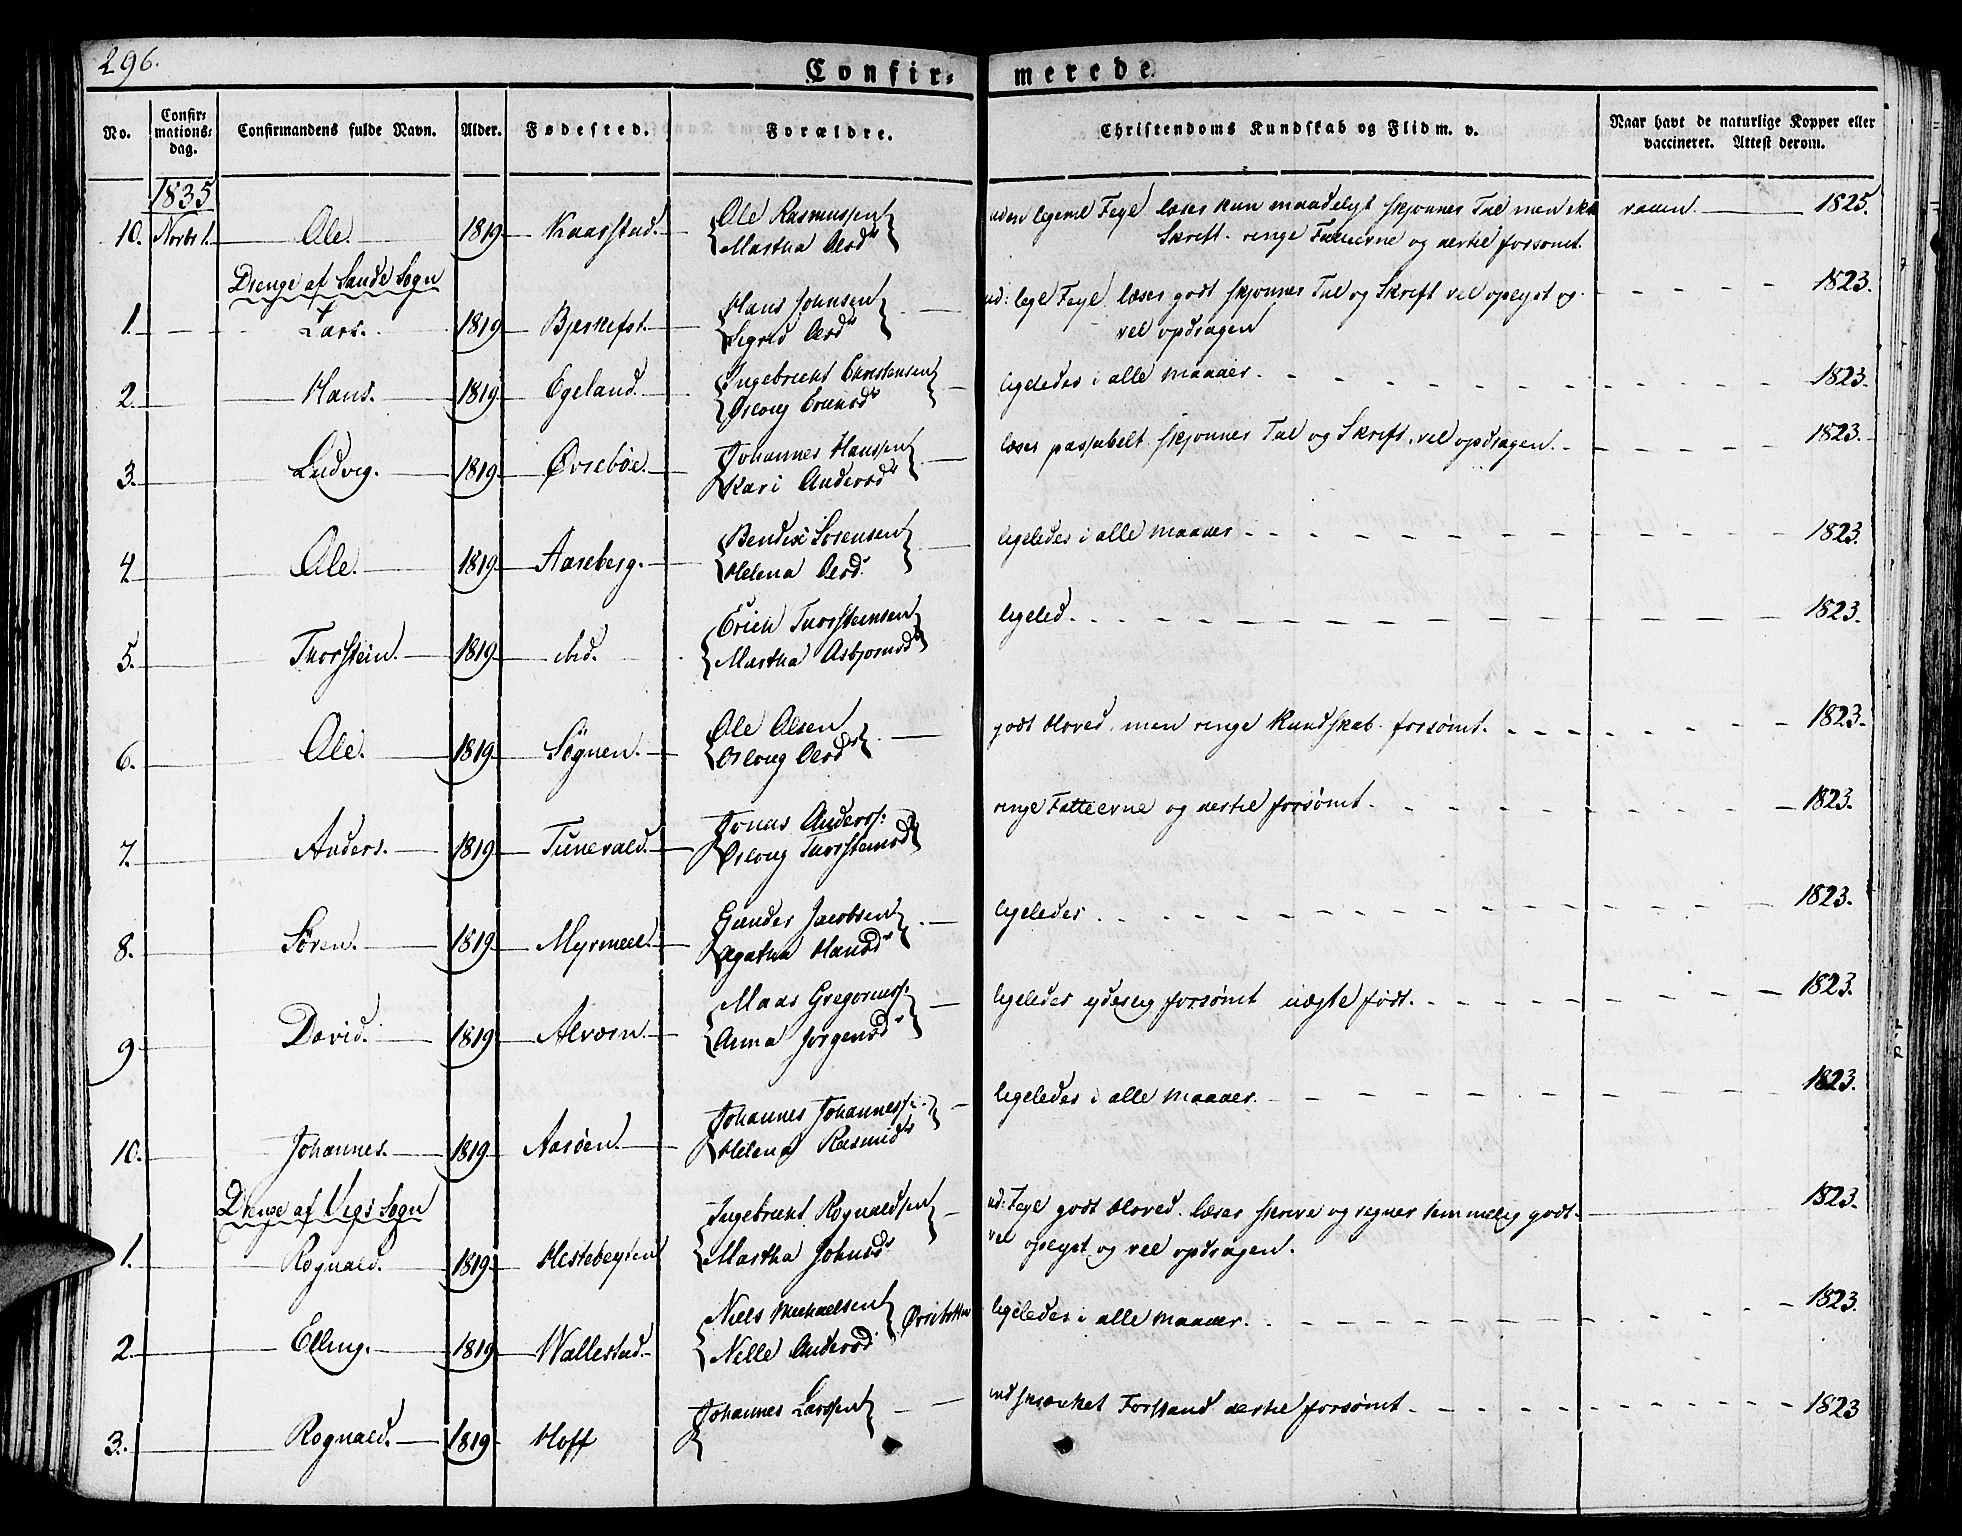 296.
Confir-merede.
No.
Confir-
mations-
dag.
Confirmandens fulde Navn.
Alder.
Fødested.
Forældre.
Christendoms Kundskab og Flid m. v.
Naar havt de naturlige Kopper eller
vaccineret. Attest derom.
1835
10. Ole. 1819 Kaarstad. Ole Rasmussen
Martha Olsd læser kun maadeligt skjønnes Tal men ikke vaccin. 1825.
Skrift. ringe og dertil forsømt.
Drenge af Sande Sogn
1. Lars. 1819 Hans Johnsen
Sigrid Olsd læser godt skjønnes Tal og Skrift vel oplyst og 1823.
vel opdragen
2. Hans. 1819 Egeland. Ingebricht Christensen
Osloug ligeledes i alle Maader. 1823.
3. Ludvig. 1819 Øvrebøe. Johannes Hanssen
Kari Andersd læser passabelt skjønnes Tal og Skrift, vel opdragen. 1823.
4 Ole. 1819 Aareberg. Bendix Sørensen
Helena Olsd. ligeledes i alle Maader 1823.
5. Thorstein. 1819 ibid. Erich Thorsteinsen
Martha Asbjornsd ligeled. 1823.
6. Ole. 1819 Sögnen. Ole Olsen
Osloug Olsd godt Hoved, men ringe Kundskab. forsømt. 1823.
7. Anders. 1819 Tunevald. Jonas Anderss:
Osloug Thorsteinsd ringe Fatteevne og dertil forsømt. 1823.
8. Søren. 1819 Myrmell. Gunder Jacobsen
Agatha Hansd ligeledes 1823.
9 David. 1819 Alvoen. Maas Gregoriuss:
Anna Jørgensd ligeledes yderlig forsømt uægte født. 1823.
10. Johannes. 1819 Aasöen. Johannes Johanness:
Helena Rasmusd ligeledes i alle Maader. 1823.
Drenge af Vigs Sogn
1. Rognald. 1819 Hestebeyten Ingebricht Rognaldsen
Martha Johnsd ud: Feyl godt Hoved. læser skrive og regner temmelig godt. 1823.
vel oplyst og vel opdragen.
2. Elling. 1819 Wallestad. Niels Michaelsen
Nelle Andersd ligeledes i alle Maader. 1823.
3. Rognald. 1819 Hoff Johannes Larssen indskrænket Forstand dertil forsømt 1823